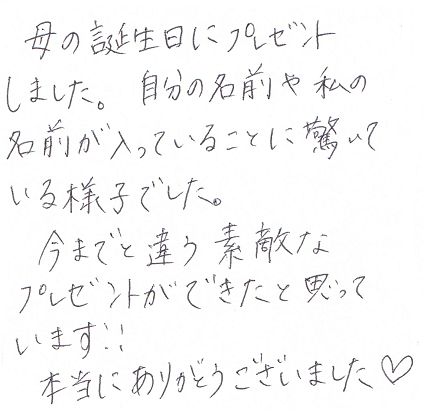 母の誕生日にプレゼント
しました。自分の名前や私の
名前が入っていることに驚いて
いる様子でした。
今までと違う素敵な
プレゼントができたと思って
います!!
本当にありがとうございました♡